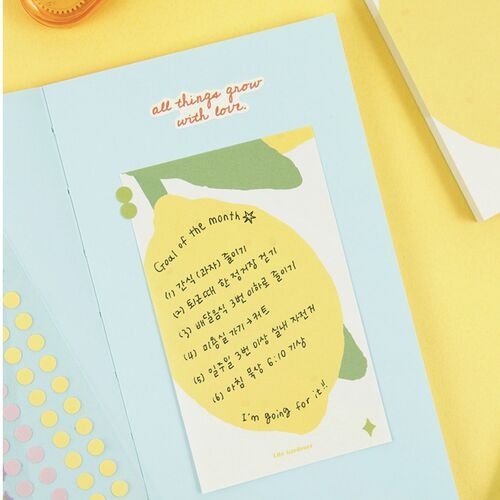 all things grow
with love.
Goal of the month ☆
(1) 간식(과자) 줄이기
(2) 퇴근때 한 정거장 걷기
(3) 배달음식 3번 이하로 줄이기
(4) 미용실 가기 → 커트
(5) 일주일 3번 이상 실내 자전거
(6) 아침 묵상 6:10 기상
I'm going for it!!
Life Gardener